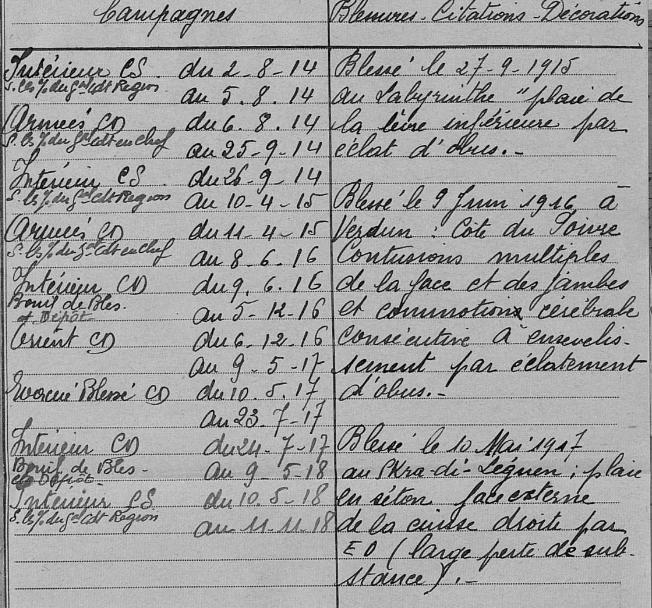 Campagnes
Intérieur CS. du 2-8-14
S. les/. du Gal Cdt Région au 5.8.14
Armées CD du 6.8.14
S. les/. du Gal Cdt en chef au 25-9-14
Intérieur CS. du 26-9-14
S. les/. du Gal Cdt Région au 10-4-15
Armées CD du 11-4-15
S. les/. du Gal Cdt en chef au 8-6-16
Intérieur CD du 9.6.16
Bonif. de Bles. au 5-12-16
et Dépôt
Orient CD du 6-12-16
au 9-5-17
Evacué Blessé CD du 10.5.17
au 23.7-17
Intérieur CD du 24-7-17
Bonif. de Bles- au 9-5-18
et Dépôt-
Intérieur CS du 10.5-18
S. les/. du Gal Cdt Région au 11-11-18
Blessures-Citations-Décorations
Blessé le 27-9-1915
au Labyrinthe "plaie de
la lèvre inférieure par
éclat d'obus.-
Blessé le 9 Juin 1916 à
Verdun : Côte du Poivre
Contusions multiples
de la face et des jambes
et commotion cérébrale
consécutive à ensevelis-
sement par éclatement
d'obus.-
Blessé le 10 Mai 1917
au Skra-di-Leguen ; plaie
en séton face externe
de la cuisse droite par
EO (large perte de sub-
stance).-